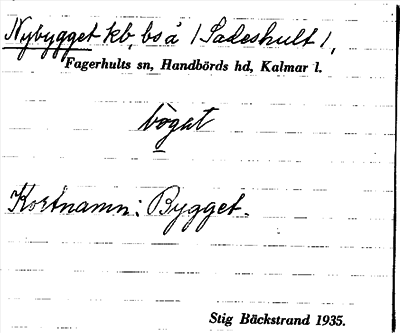 Nybygget kb, bs å /Sadeshult/,
Fagerhults sn, Handbörds hd, Kalmar l.
bögat
Kortnamn: Bygget.
Stig Bäckstrand 1935.